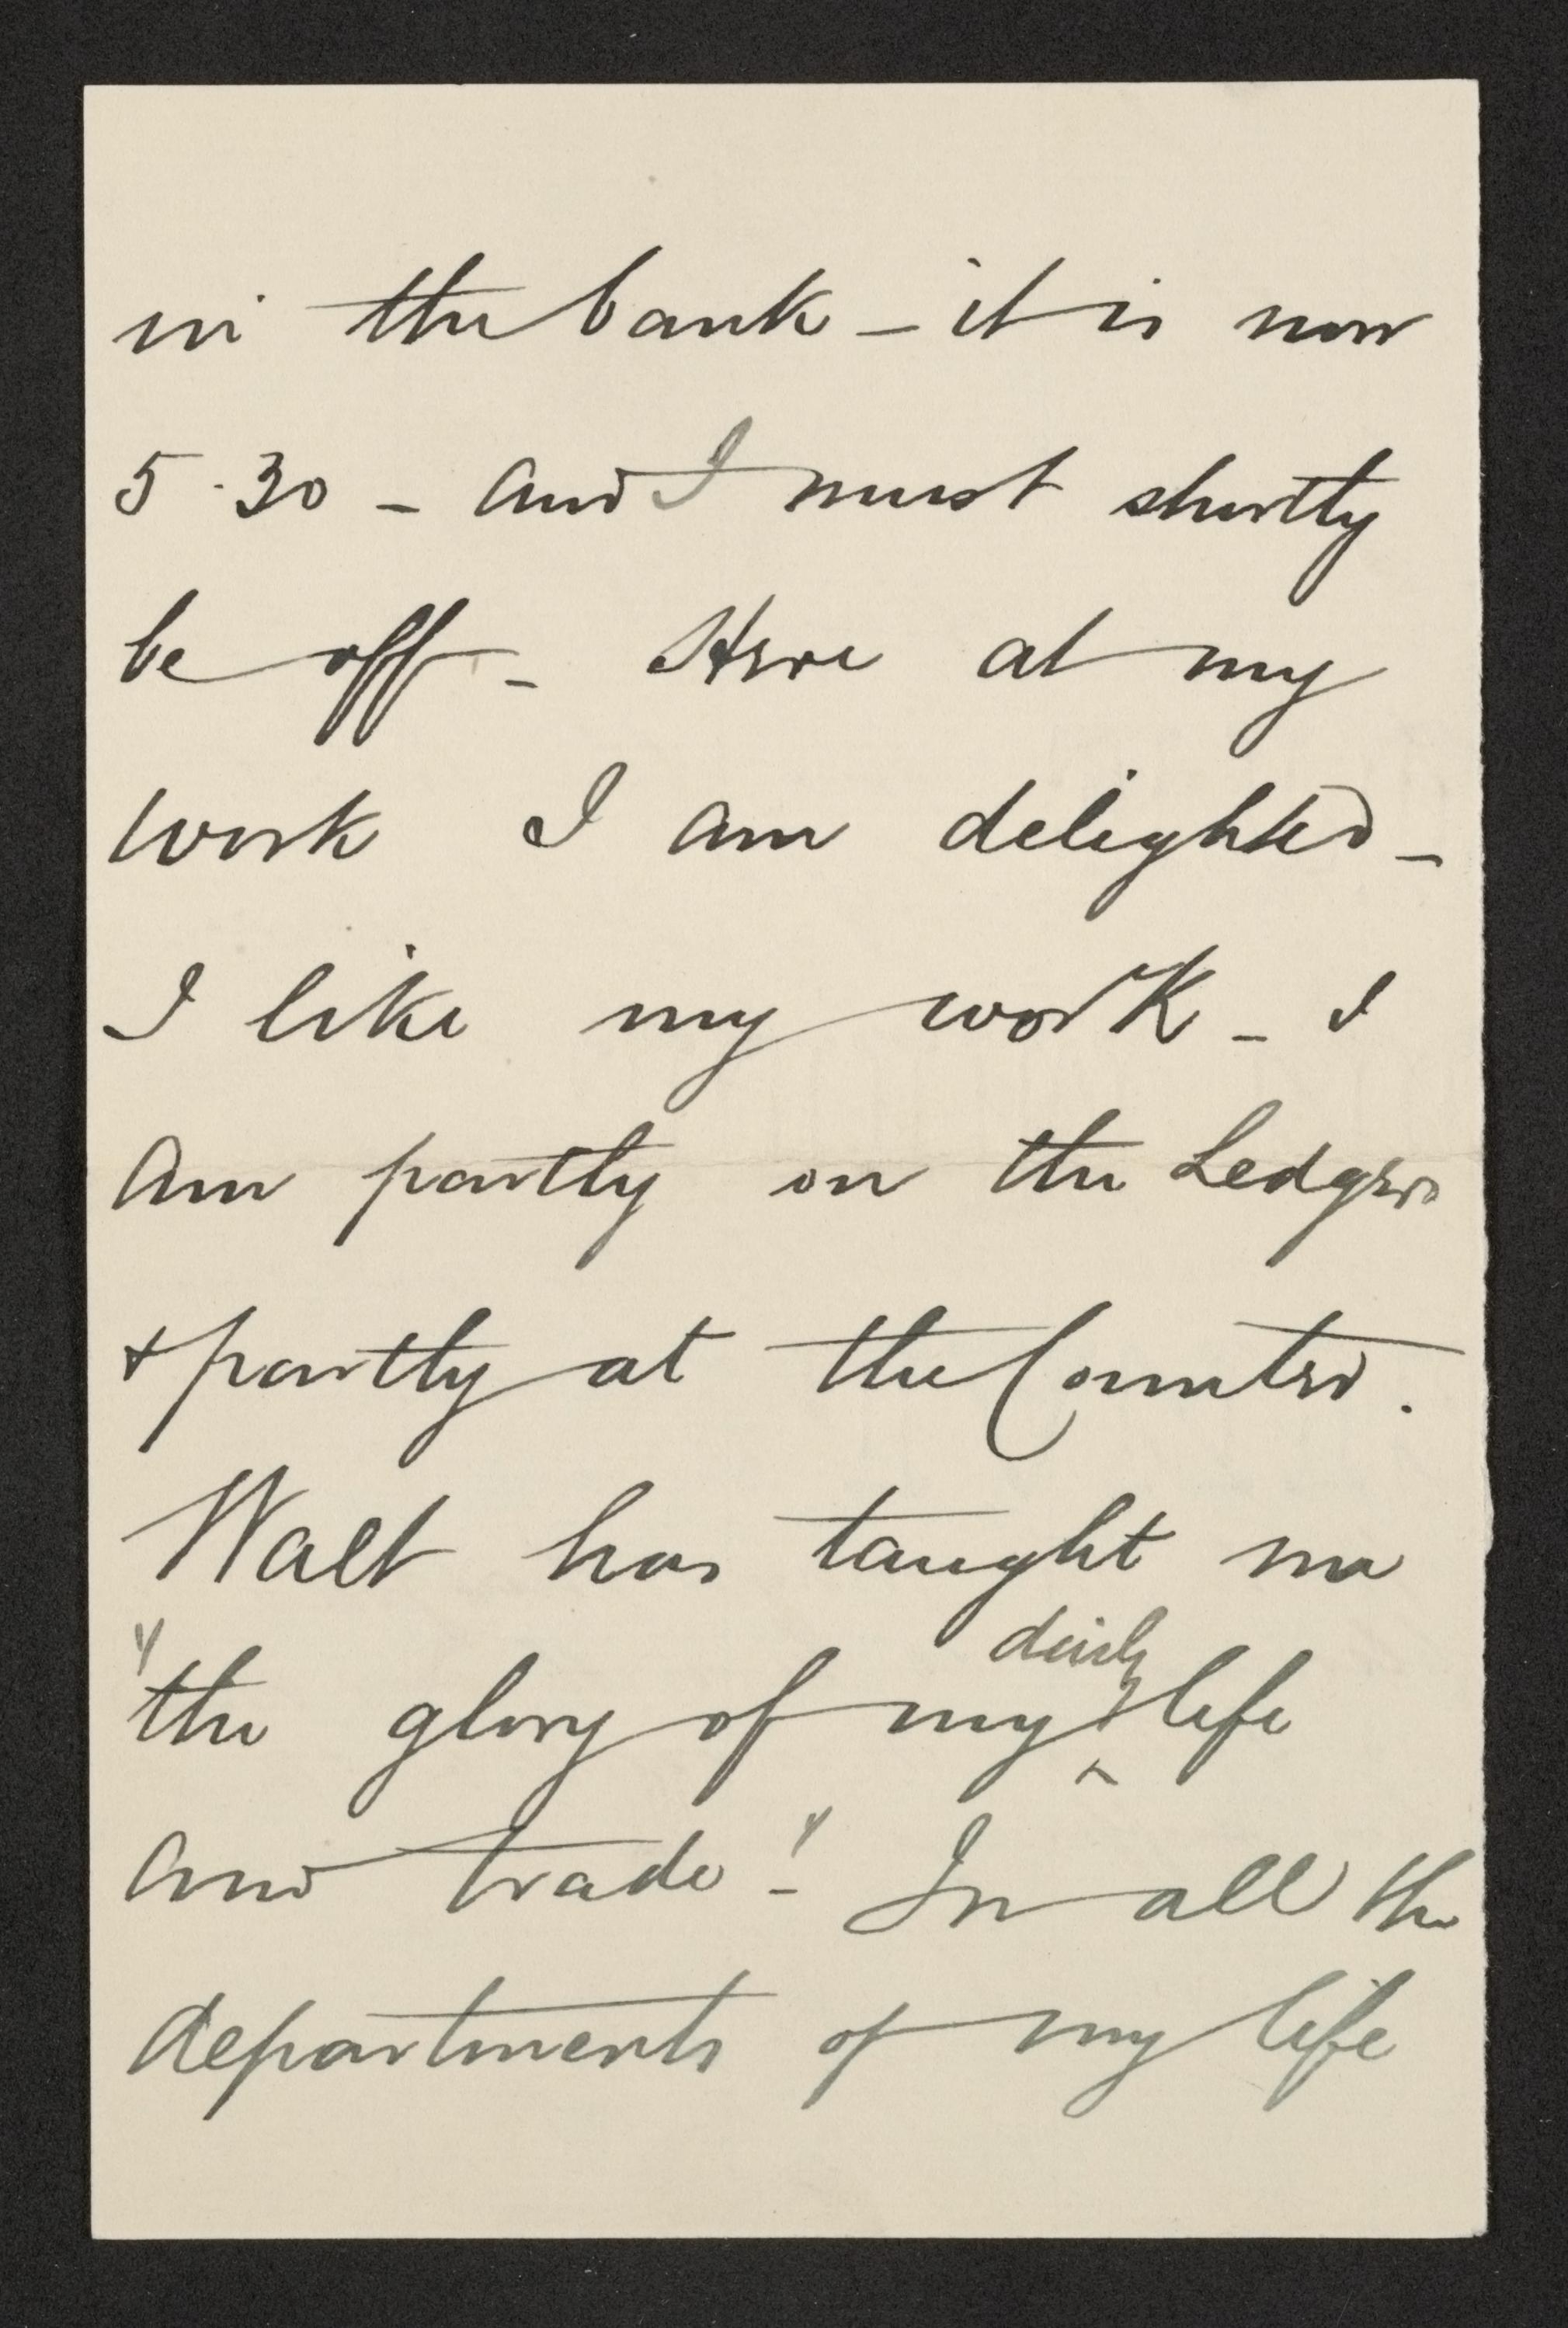 in the bank – it is now
5.30 – and I must shortly
be off – Here at my
work I am delighted –
I like my work – I
am partly on the Ledgers
& partly at the Counter.
Walt has taught me
daily
"the glory of my life
and trade" – In all the
departments of my life